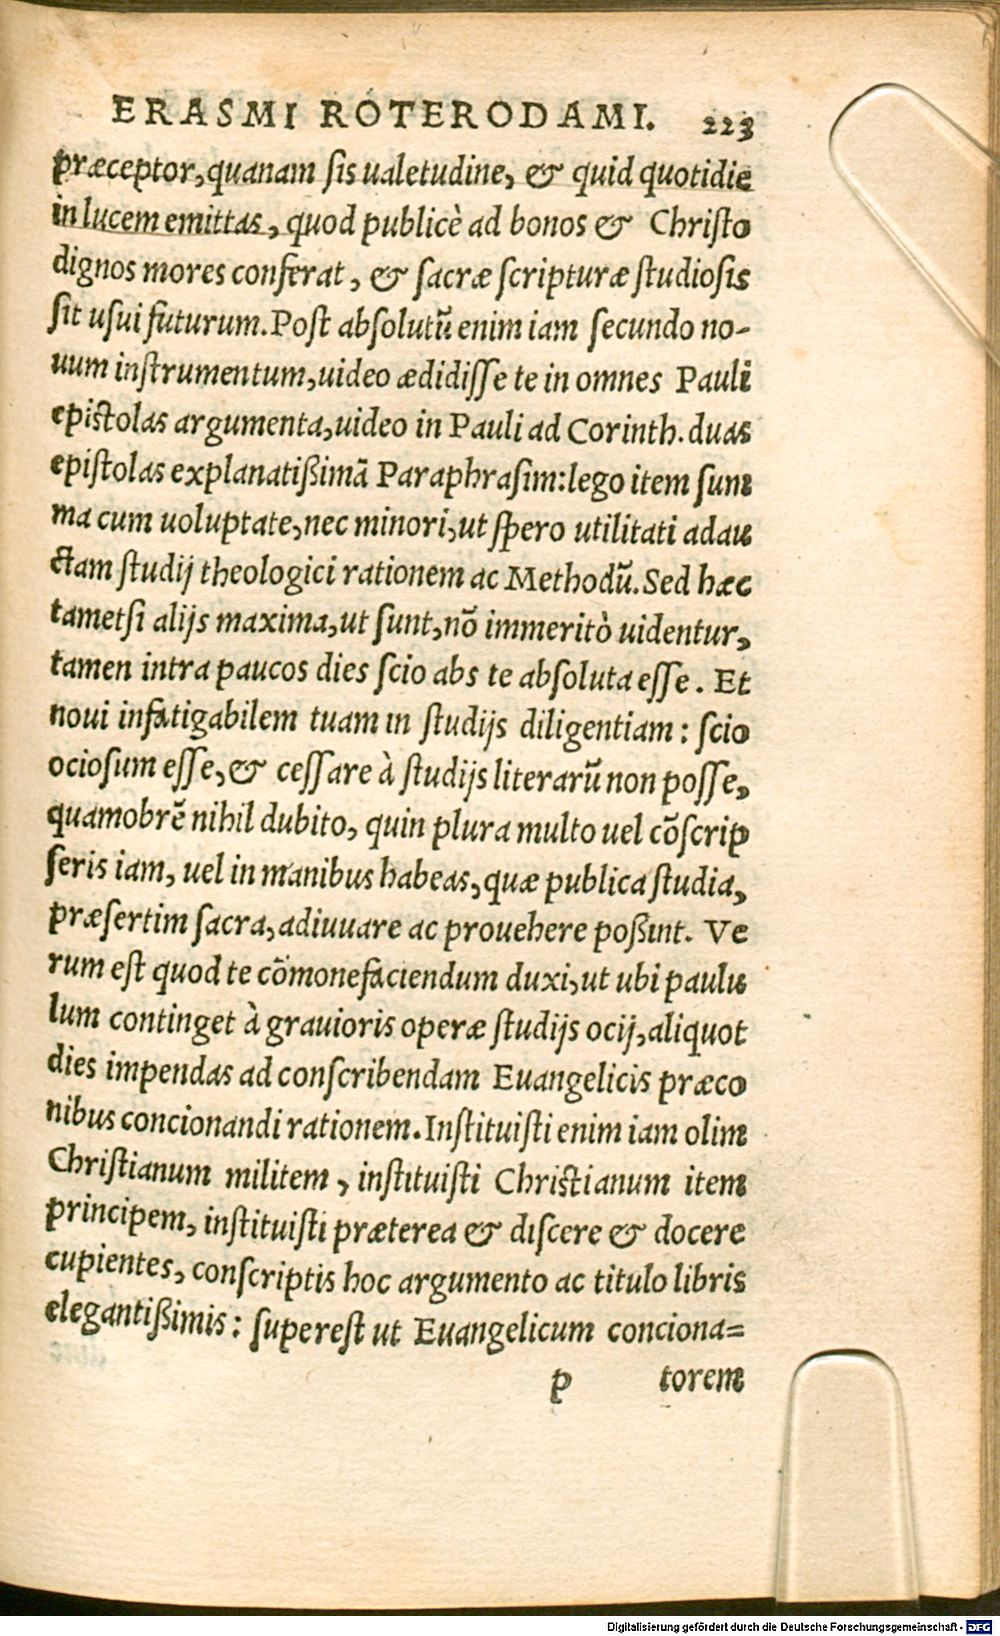 ERASMI ROTERODAMI. 223
præceptor, quanam sis ualetudine, & quid quotidie
in lucem emittas, quod publicè ad bonos & Christo
dignos mores conferat, & sacræ scripturæ studiosis
sit usui futurum. Post absolutū enim iam secundo no-
uum instrumentum, uideo ædidisse te in omnes Pauli
epistolas argumenta, uideo in Pauli ad Corinth. duas
epistolas explanatißimā Paraphrasim: lego item sum
ma cum uoluptate, nec minori, ut spero utilitati adau
ctam studij theologici rationem ac Methodū. Sed hæc
tametsi alijs maxima, ut sunt, nō immeritò uidentur,
tamen intra paucos dies scio abs te absoluta esse. Et
noui infatigabilem tuam in studijs diligentiam: scio
ociosum esse, & cessare à studijs literarū non posse,
quamobrē nihil dubito, quin plura multo uel cōscrip
seris iam, uel in manibus habeas, quæ publica studia,
præsertim sacra, adiuuare ac prouehere poßint. Ve
rum est quod te cōmonefaciendum duxi, ut ubi paulu
lum continget à grauioris operæ studijs ocij, aliquot
dies impendas ad conscribendam Euangelicis præco
nibus concionandi rationem. Instituisti enim iam olim
Christianum militem, instituisti Christianum item
principem, instituisti præterea & discere & docere
cupientes, conscriptis hoc argumento ac titulo libris
elegantißimis: superest ut Euangelicum conciona=
p torem
Digitalisierung gefördert durch die Deutsche Forschungsgemeinschaft - DFG